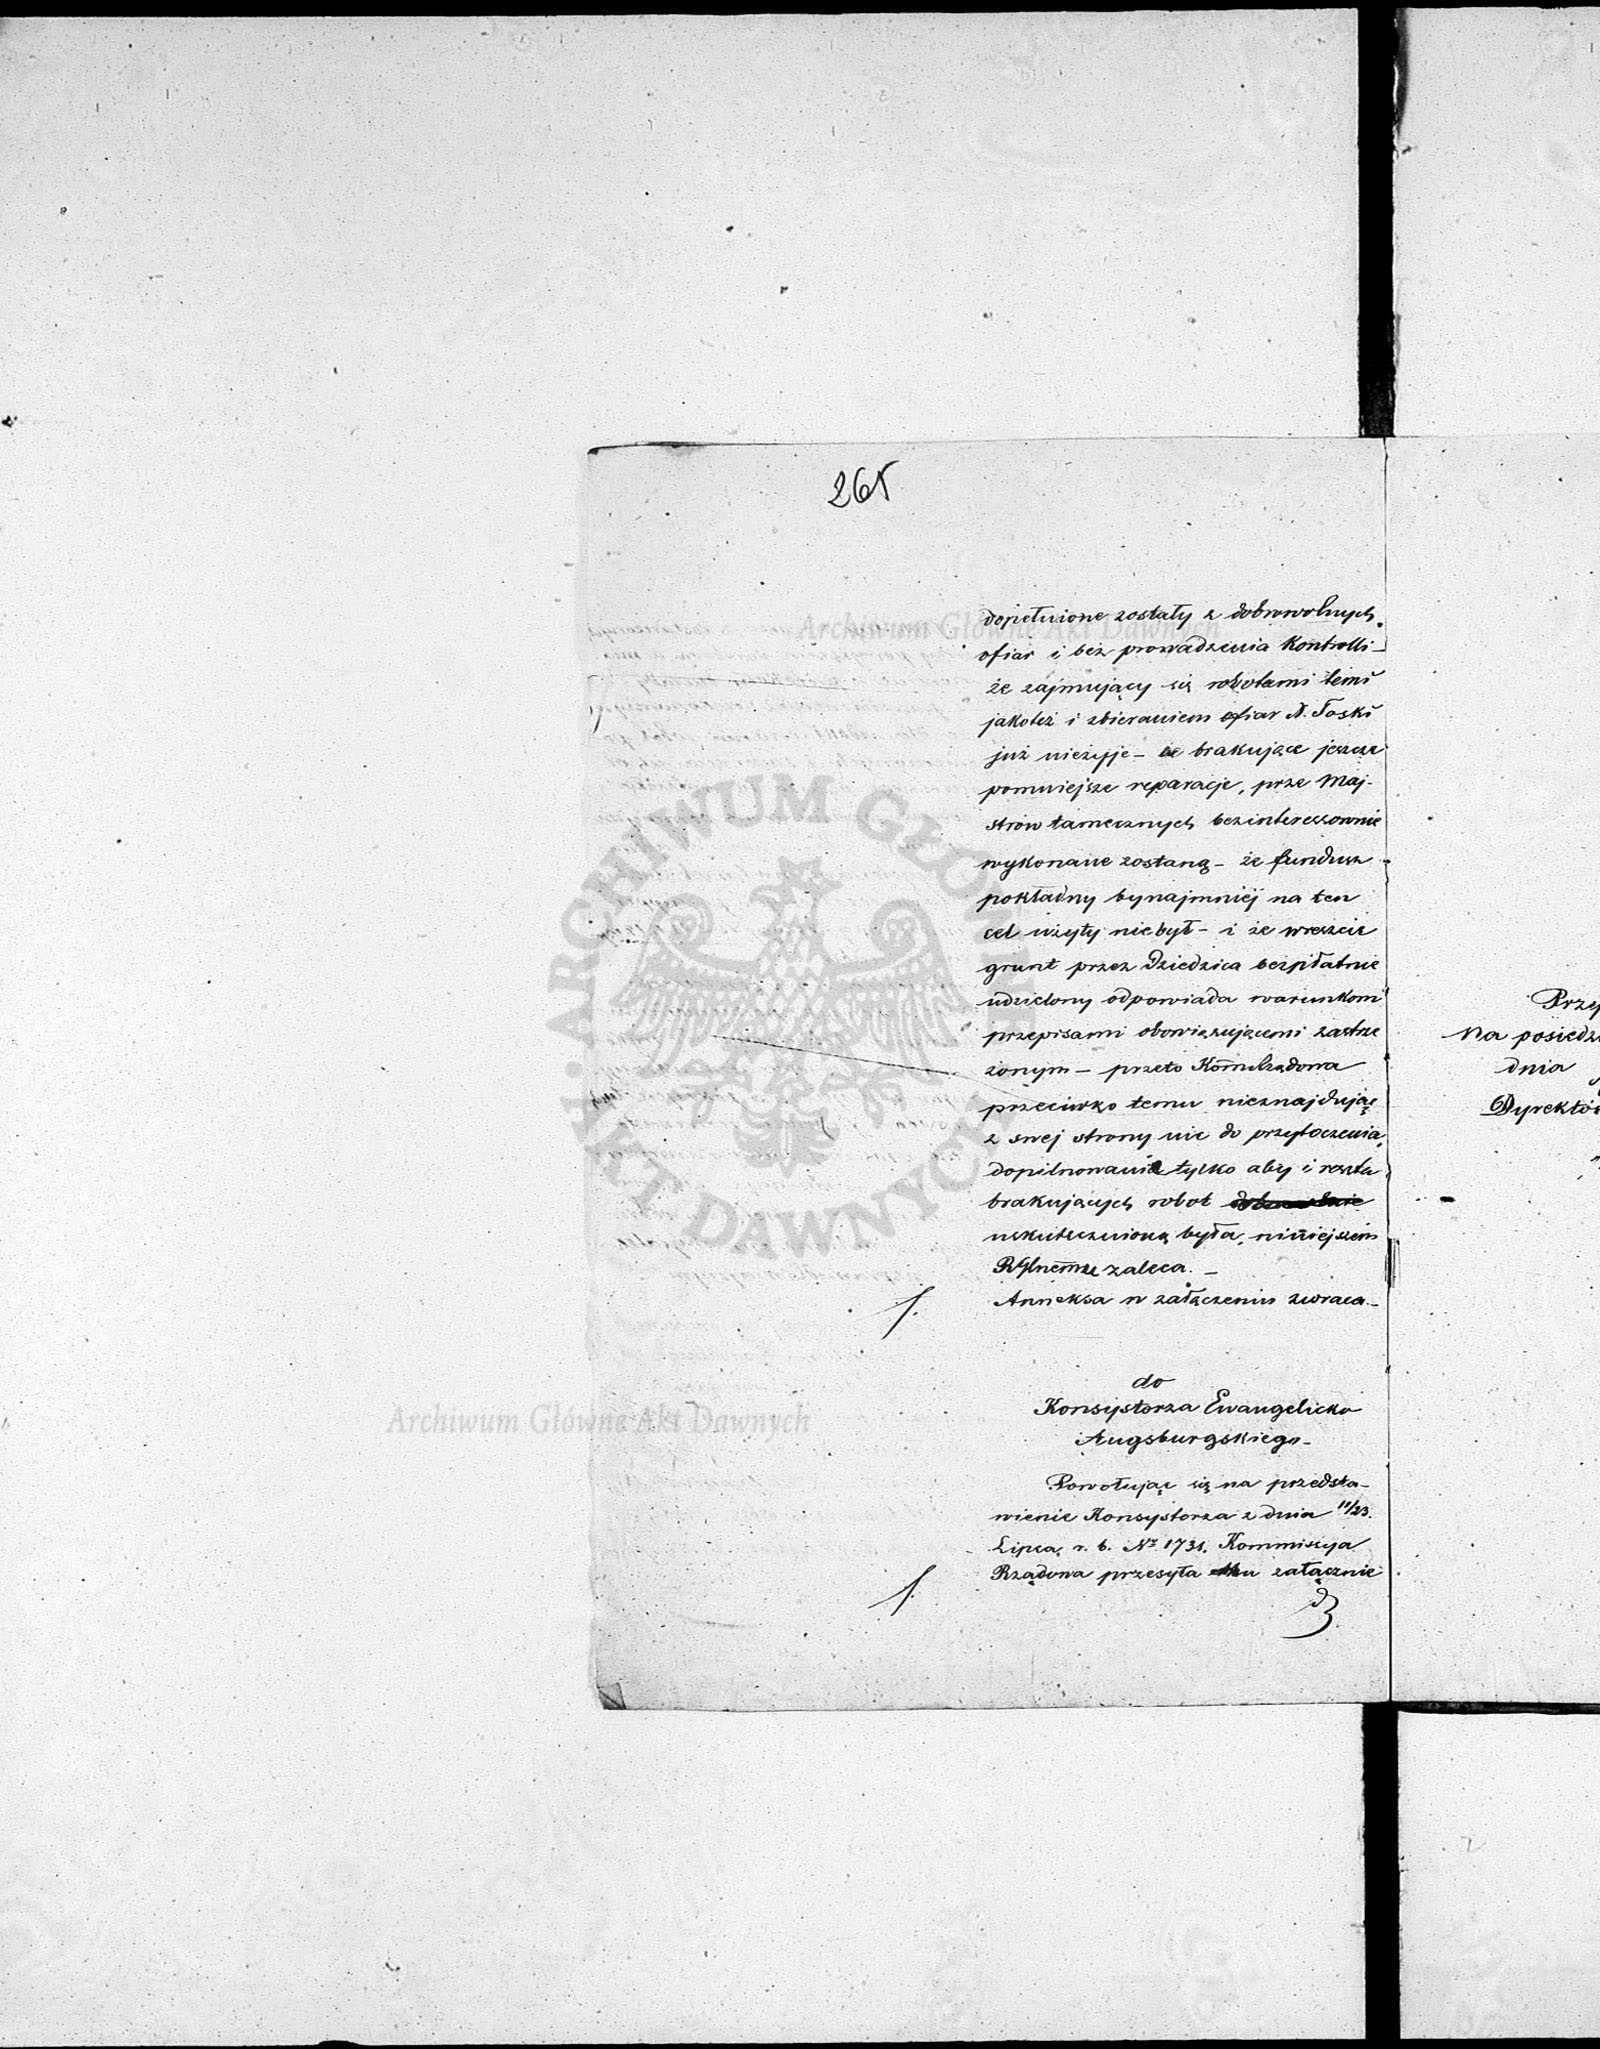 265
dopełnione zostały z dobrowolnych
ofiar i bez prowadzenia Kontrolli –
że zajmujący się robotami temi
jakoteż i zbieraniem ofiar N. Toski
już nieżyje – że brakujące jeszcze
pomniejsze reparacje, prze Maj-
strów tamecznych bezinteressownie
wykonane zostaną – że fundusz
pokładny bynajmniéj na ten
cel użyty nie był – i że wreszcie
grunt przez Dziedzica bezpłatnie
udzielony odpowiada warunkom
przepisami obowiązującemi zastrze
żonym – przeto Kom̄Rządowa
przeciwko temu nieznajdując
z swej strony nic do przytoczenia,
dopilnowanie tylko aby i reszta
brakujących robot
uskuteczniona była, niniejszem
zaleca. –
Annexa w załączeniu zwraca. –
1.
do
Konsystorza Ewangelicko
Augsburgskiego –
Powołując się na przedsta-
wienie Konsystorza z dnia 11/23.
Lipca r. b. Nr 1731. Kommissya
Rządowa przesyła mu załącznie
1.
Przep
Na posiedze
dnia
Dyrektór
ARCHIWUM GŁÓWNE AKT DAWNYCH
Archiwum Główne Akt Dawnych
Archiwum Główne Akt Dawnych